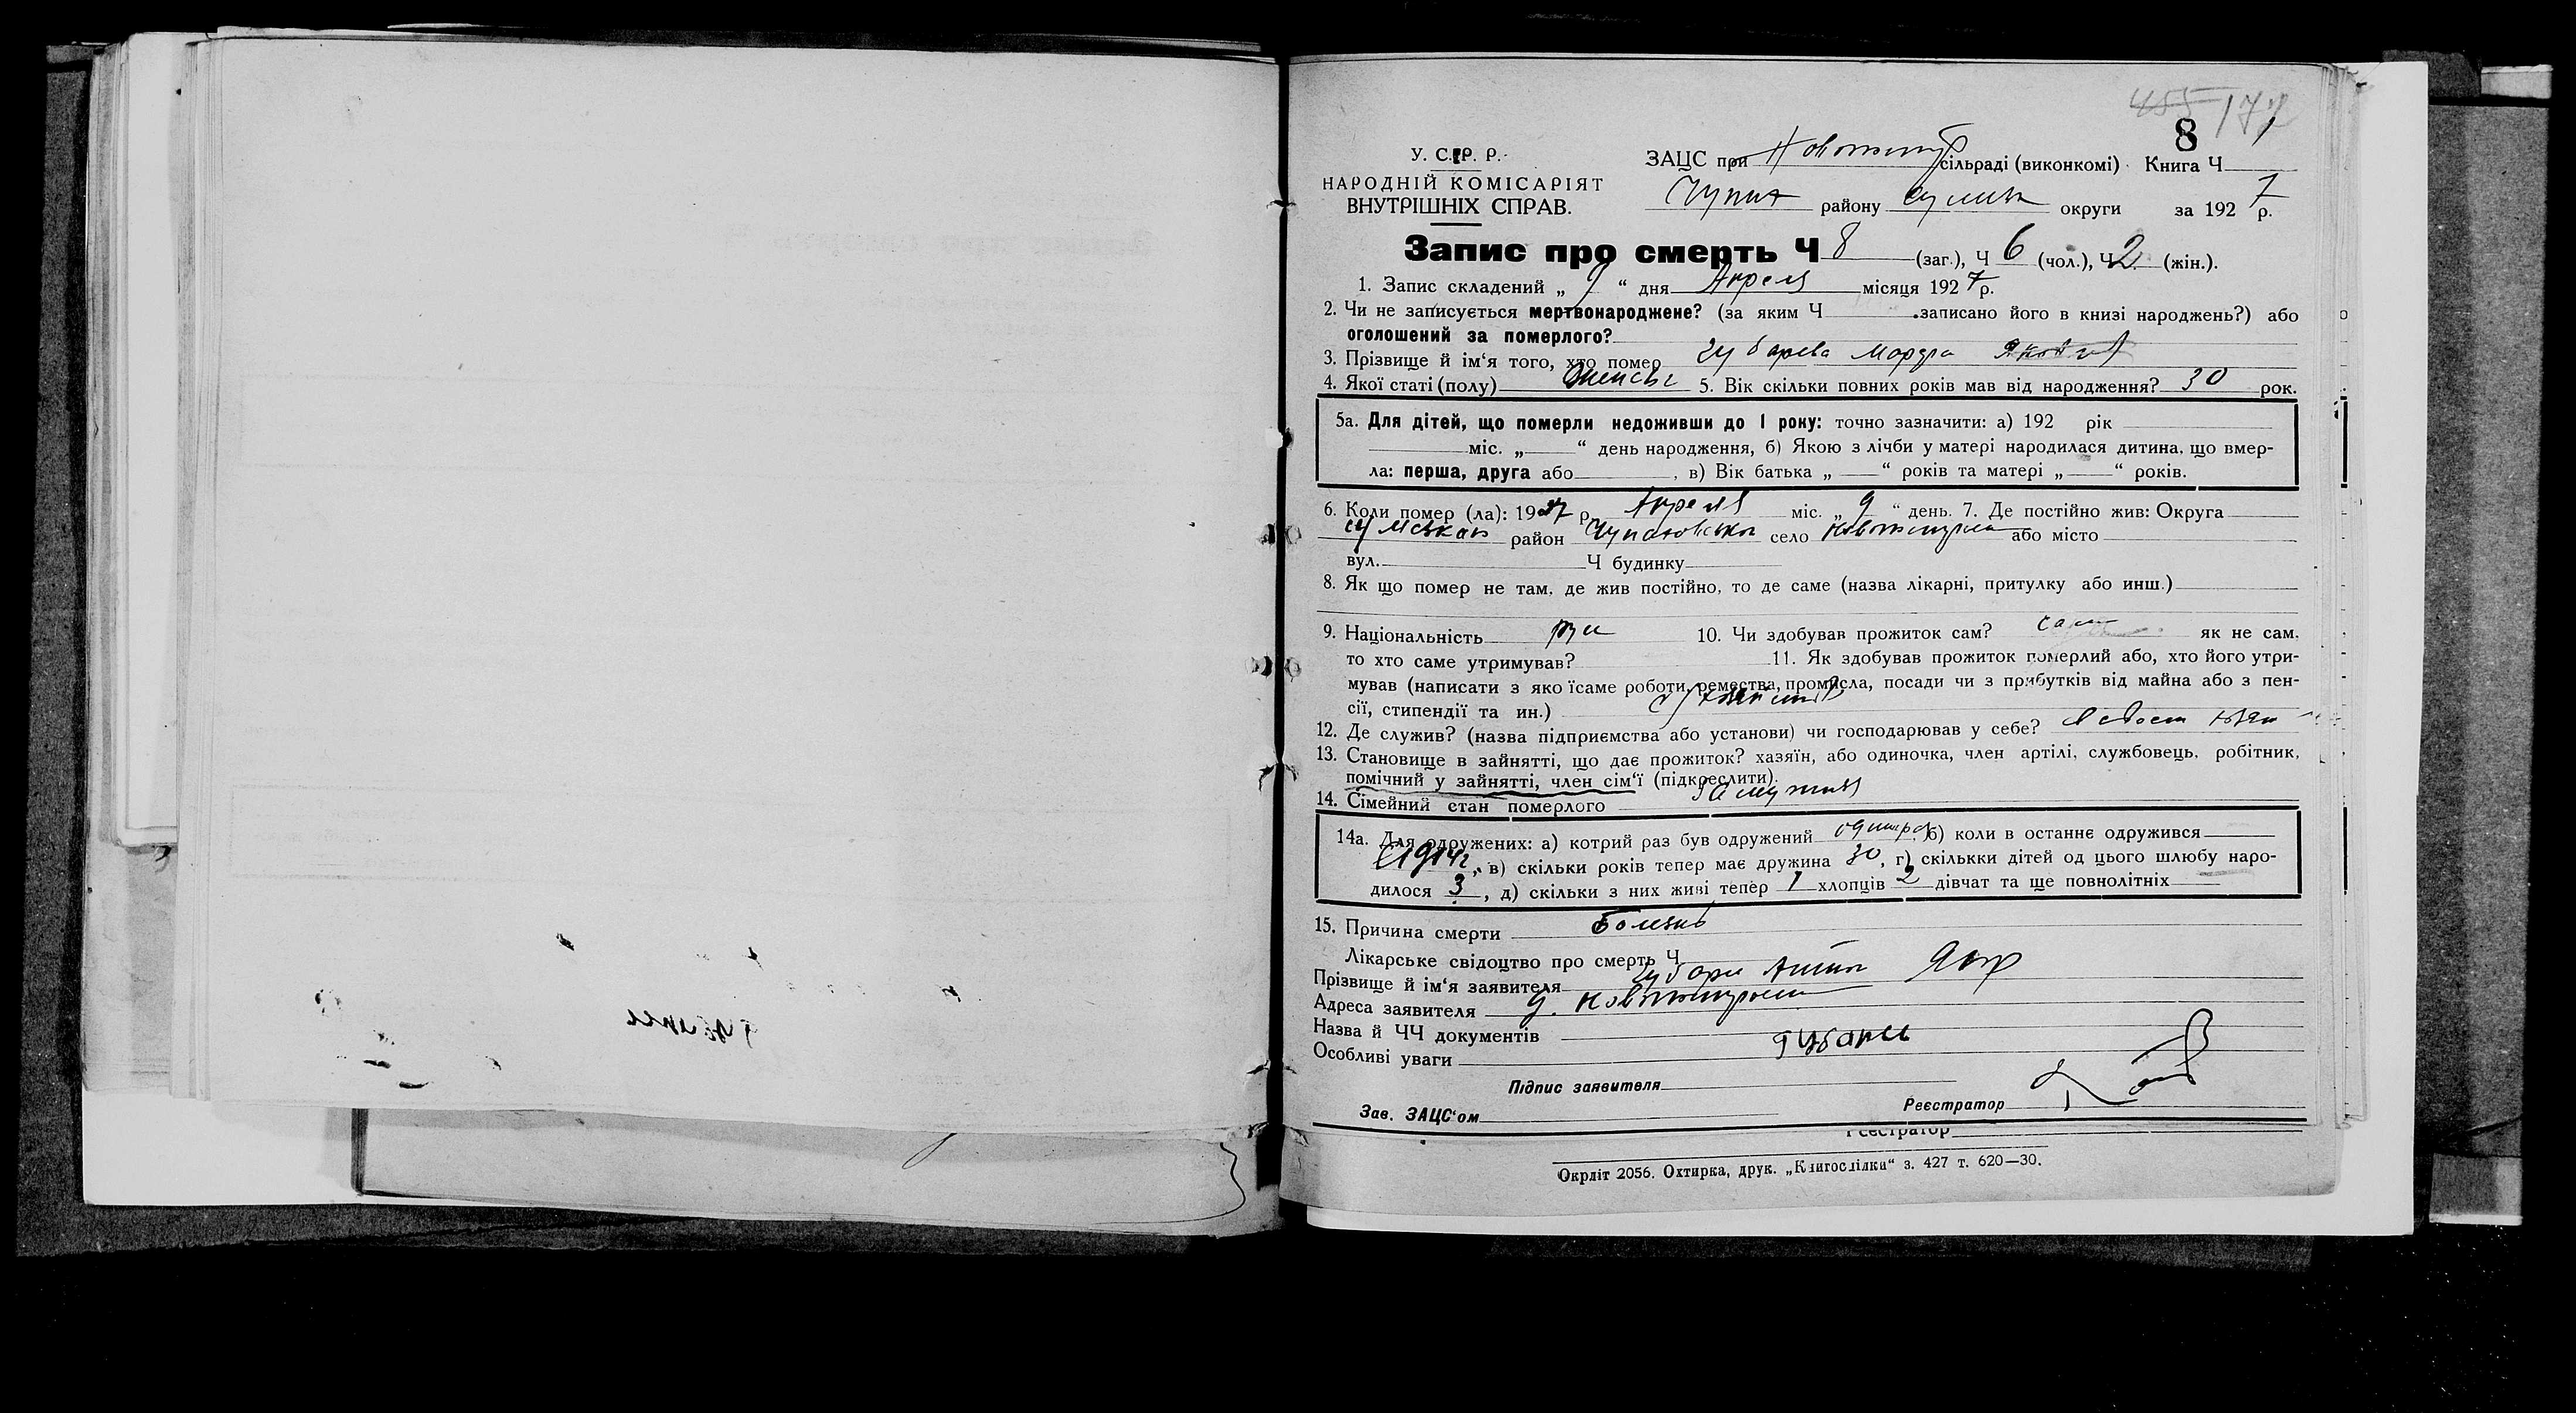 455 172
8
У. С. Р. Р.
НАРОДНІЙ КОМІСАРІЯТ
ВНУТРІШНІХ СПРАВ.
ЗАЦС при сільраді (виконкомі) Книга Ч 1
Чупах району Сумск округи за 1927 р.
Запис про смерть Ч 8 (заг.), Ч 6 (чол.), Ч 2 (жін.).
1. Запис складений „ 9 “ дня Апреля місяця 1927 р.
2. Чи не записується мертвонароджене? (за яким Ч записано його в книзі народжень?) або
оголошений за померлого?
3. Прізвище й ім‘я того, хто помер Губарева
4. Якої статі (полу) Женськ 5. Вік скільки повних років мав від народження? 30 рок.
5а. Для дітей, що померли недоживши до 1 року: точно зазначити: а) 192 рік
міс. „ “ день народження, б) Якою з лічби у матері народилася дитина, що вмер-
ла: перша, друга або , в) Вік батька „ “ років та матері „ “ років.
6. Коли помер (ла): 1927 р. Апреля міс. „ 9 “ день. 7. Де постійно жив: Округа
район село або місто
вул. Ч будинку
8. Як що помер не там, де жив постійно, то де саме (назва лікарні, притулку або инш.)
9. Національність рус 10. Чи здобував прожиток сам? сам як не сам,
то хто саме утримував? 11. Як здобував прожиток померлий або, хто його утри-
мував (написати з яко їсаме роботи, ремества, промисла, посади чи з прибутків від майна або з пен-
сії, стипендії та ин.)
12. Де служив? (назва підприємства або установи) чи господарював у себе?
13. Становище в зайнятті, що дає прожиток? хазяїн, або одиночка, член артілі, службовець, робітник,
помічний у зайнятті, член сім‘ї (підкреслити).
14. Сімейний стан померлого замужня
14а. Для одружених: а) котрий раз був одружений б) коли в останнє одружився
1914 г, в) скільки років тепер має дружина 30, г) скількки дітей од цього шлюбу наро-
дилося 3, д) скільки з них живі тепер 1 хлопців 2 дівчат та ще повнолітніх
15. Причина смерти Болезнь
Лікарське свідоцтво про смерть Ч
Прізвище й ім‘я заявителя
Адреса заявителя
Назва й ЧЧ документів
Особливі уваги
Губарь
Підпис заявителя
Зав. ЗАЦС‘ом Реєстратор
Реєстратор
Окрліт 2056. Охтирка, друк. „Книгоспілка“ з. 427 т. 620—30.